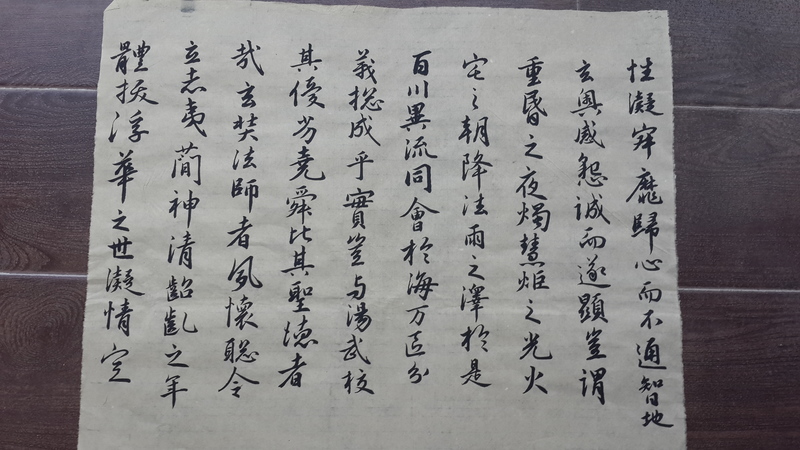 性凝寂靡歸心而不通智地
玄奧感懇誠而遂顯豈謂
重昏之夜燭慧炬之光火
宅之朝降法雨之澤於是
百川異流同會於海万區分
義揔成乎實豈与湯武校
其優劣堯舜比其聖德者
哉玄奘法師者夙懷聰令
立志夷簡神清齠齔之年
體拔浮華之世凝情定